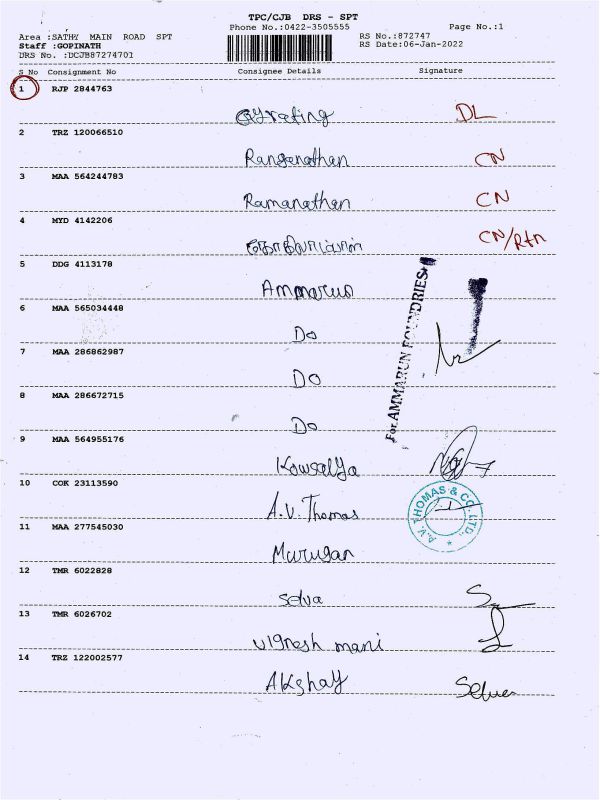 TPC/CJB DRS - SPT
Phone No.:0422-3505555 Page No.:1
Area :SATHY MAIN ROAD SPT RS No.:872747
Staff :GOPINATH RS Date:06-Jan-2022
DRS No. :DCJB87274701
S No Consignment No Consignee Details Signature
1 RJP 2844763
DL
2 TRZ 120066510
Ranganathan CN
3 MAA 564244783
Ramanathan CN
4 MYD 4142206
CN/Rtn
5 DDG 4113178
Ammarun
For AMMARUN FOUNDRIES
6 MAA 565034448
Do
7 MAA 286862987
Do
8 MAA 286672715
Do
9 MAA 564955176
Kowsalya
10 COK 23113590
A.V. Thomas
A.V. THOMAS & CO. LTD.
11 MAA 277545030
Murugan
12 TMR 6022828
Selva
13 TMR 6026702
Vignesh mani
14 TRZ 122002577
Akshay